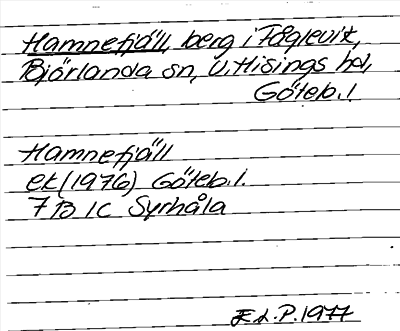 Hamnefjäll, berg i Fåglevik,
Björlanda sn, V. Hisings hd,
Göteb. l.
Hamnefjäll
ek (1976) Göteb. l.
7 B 1C Syrhåla
E L. P. 1977